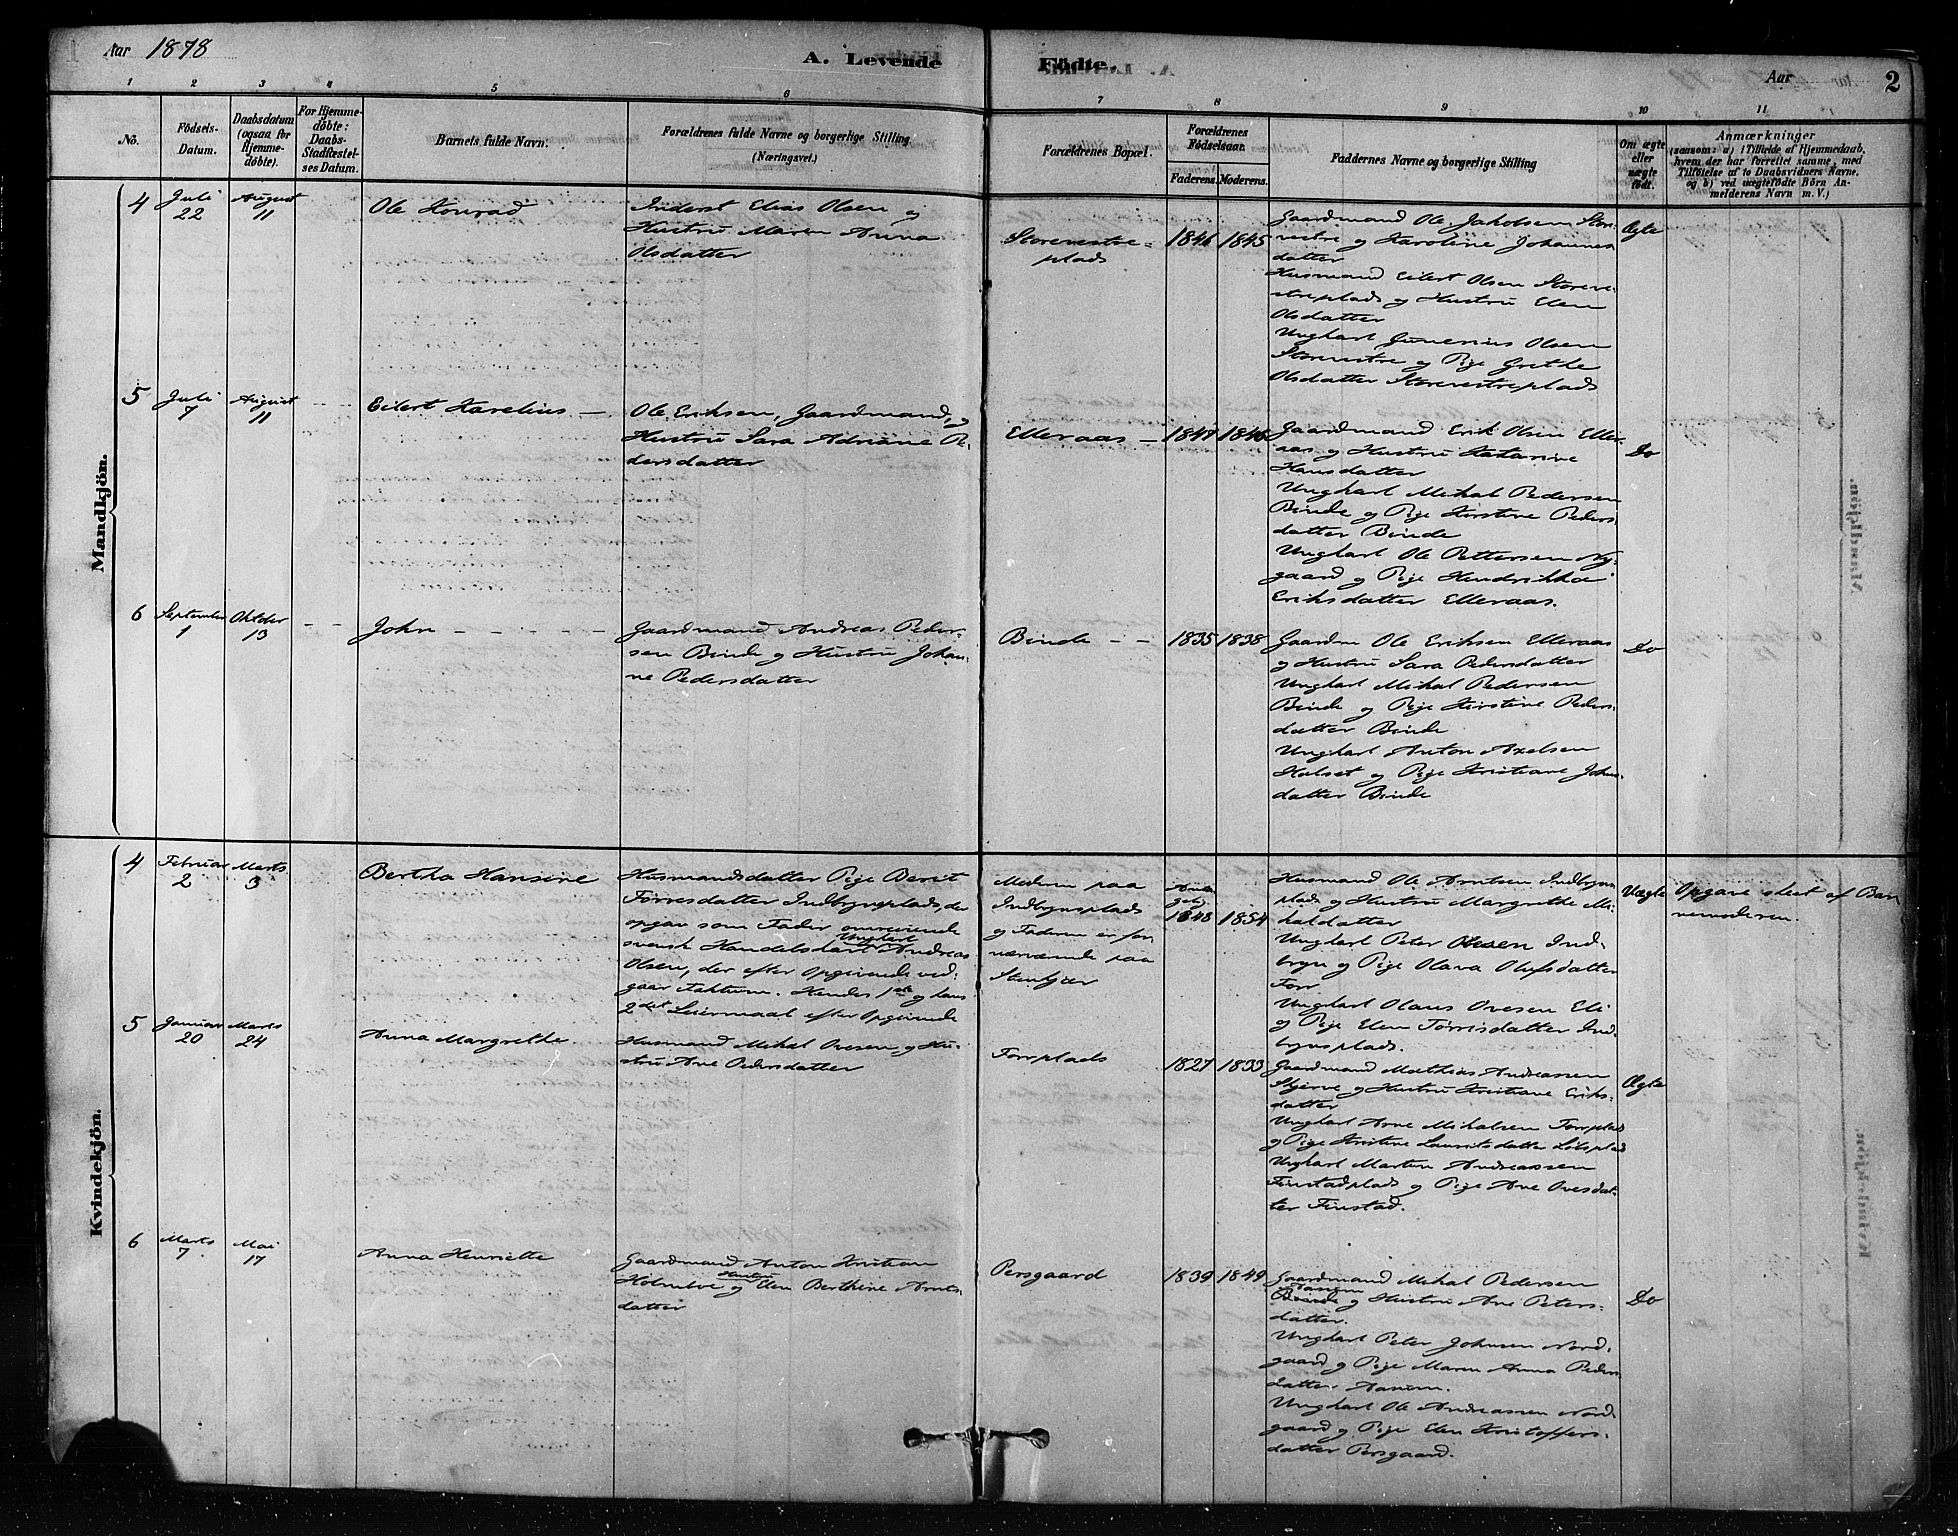 Aar 1878
A. Levende Fødte.
Aar
2
1 2 3 4 5 6 7 8 9 10 11
No.
Fødsels-
Datum.
Daabsdatum
(ogsaa for
Hjemme-
døbte).
For Hjemme-
døbte:
Daabs-
Stadfæstel-
ses Datum.
Barnets fulde Navn.
Forældrenes fulde Navne og borgerlige Stilling
(Næringsvei.)
Forældrenes Bopæl.
Forældrenes
Fødselsaar.
Faderens. Moderens.
Faddernes Navne og borgerlige Stilling
Om ægte
eller
uægte
født.
Anmærkninger
(saasom: a) i Tilfælde af Hjemmedaab,
hvem der har forrettet samme, med
Tilføielse af to Daabsvidners Navne,
og b) ved uægtefødte Børn An-
melderens Navn m. V.)
Mandkjøn.
4
Juli
22
August
11
Ole Konrad
Inderst Elias Olsen og
Hustru Maren Anna
Olsdatter
Storevestre-
plads
1846 1845
Gaardmand Ole Jakobsen Stor-
vestre og Karoline Johannes
datter
Husmand Eilert Olsen Storeve-
streplads og Hustru Elen
Olsdatter
Ungkarl Junerius Olsen
Storevestre og Pige Grethe
Olsdatter Storevestreplads
Ægte
5
Juli
7
August
11
Eilert Karelius
Ole Eriksen, Gaardmand, og
Hustru Sara Adriane Pe-
dersdatter
Elleraas
1847 1846
Gaardmand Erik Olsen Eller-
aas og Hustru Katarine
Hansdatter
Ungkarl Mikal Pedersen
Binde og Pige Kirstine Peders-
datter Binde
Ungkarl Ole Pettersen Ny-
gaard og Pige Hendrikka
Eriksdatter Elleraas.
Do
6
September
1
Oktober
13
John
Gaardmand Andreas Peder-
sen Binde og Hustru Johan-
ne Pedersdatter
Binde
1835 1838
Gaardm Ole Eriksen Elleraas
og Hustru Sara Pedersdatter
Ungkarl Mikal Pedersen
Binde og Pige Kirstine Peders-
datter Binde
Ungkarl Anton Axelsen
Halset og Pige Kristiane Johns-
datter Binde
Do
Kvindekjøn.
4
Februar
2
Marts
3
Bertha Hansine
Husmandsdatter Pige Berit
Torresdatter Indbrynsplads, der
opgav som Fader omreisende
svensk Handelskarl Ungkarl Andreas
Olsen, der efter Opgivende ved-
gaar Faktum. Hendes 1ste og hans
2det Leiermaal efter Opgivende
Moderen paa
Indbrynsplads
og Faderen er for
nærværende paa
Stenkjær
1848 1854
Husmand Ole Arntsen Indbryns
plads og Hustru Margrethe Mi-
kaldatter
Ungkarl Peter Olesen Ind-
bryn og Pige Olava Olufsdatter
Forr
Ungkarl Olaus Ovesen Eli
og Pige Elen Torrisdatter Ind-
brynsplads.
Uægte
Opgave skeet af Bar
nemoderen.
5
Januar
20
Marts
24
Anna Margrethe
Husmand Mikal Ovesen, og Hu-
stru Ane Pedersdatter
Forrplads
1827 1833
Gaardmand Mathias Andreassen
Skjerve og Hustru Kristiane Eriks-
datter
Ungkarl Arne Mikalsen Forrplads
og Pige Kristine Lauritsdatter Leksplad
Ungkarl Martin Andreassen
Finstadplads og Pige Ane Ovesdat-
ter Finstad.
Ægte
6
Marts
7
Mai
17
Anna Henriette
Gaardmand Anton Kristian
Holmboe og Hustru Elen Berthine Arnts-
datter
Persgaard
1839 1849
Gaardmand Mikal Pedersen
Aasum
og Hustru Ane Peters-
datter.
Ungkarl Peter Johnsen Nord-
gaard og Pige Maren Anna Peders
datter Aasum.
Ungkarl Ole Andreassen Nord-
gaard og Pige Elen Kristoffers-
datter Persgaard.
Do